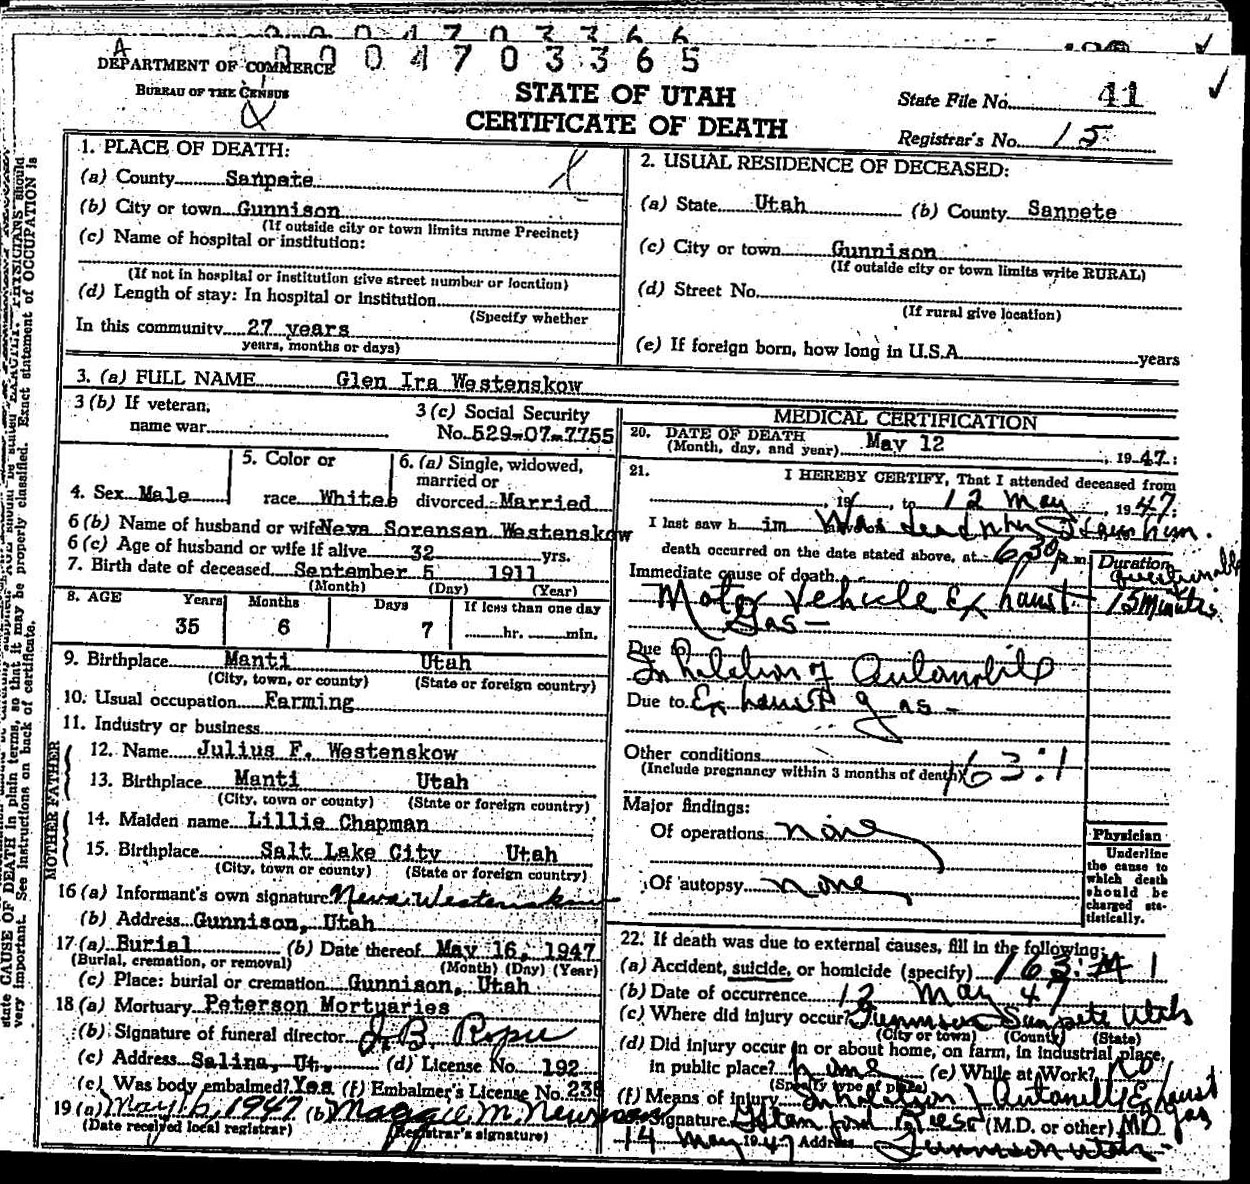 0004703366
0004703365
A
DEPARTMENT OF COMMERCE
BUREAU OF THE CENSUS
STATE OF UTAH
CERTIFICATE OF DEATH
State File No. 41
Registrar's No. 15
1. PLACE OF DEATH:
(a) County Sanpete
(b) City or town Gunnison
(If outside city or town limits name Precinct)
(c) Name of hospital or institution:
(If not in hospital or institution give street number or location)
(d) Length of stay: In hospital or institution
(Specify whether
In this community 27 years
years, months or days)
2. USUAL RESIDENCE OF DECEASED:
(a) State Utah (b) County Sanpete
(c) City or town Gunnison
(If outside city or town limits write RURAL)
(d) Street No.
(If rural give location)
(e) If foreign born, how long in U.S.A. years
3. (a) FULL NAME Glen Ira Westenskow
3 (b) If veteran, name war
3 (c) Social Security No. 529-07-7755
4. Sex Male
5. Color or race Whitee
6. (a) Single, widowed, married or divorced Married
6 (b) Name of husband or wife Neva Sorensen Westenskow
6 (c) Age of husband or wife if alive 32 yrs.
7. Birth date of deceased September 5 1911
(Month) (Day) (Year)
8. AGE Years Months Days If less than one day
35 6 7 hr. min.
9. Birthplace Manti Utah
(City, town, or county) (State or foreign country)
10. Usual occupation Farming
11. Industry or business
FATHER
12. Name Julius F. Westenskow
13. Birthplace Manti Utah
(City, town or county) (State or foreign country)
MOTHER
14. Maiden name Lillie Chapman
15. Birthplace Salt Lake City Utah
(City, town or county) (State or foreign country)
16 (a) Informant's own signature Neva Westenskow
(b) Address Gunnison, Utah
17 (a) Burial (b) Date thereof May 16, 1947
(Burial, cremation, or removal) (Month) (Day) (Year)
(c) Place: burial or cremation Gunnison, Utah
18 (a) Mortuary Peterson Mortuaries
(b) Signature of funeral director
(c) Address Salina, Ut. (d) License No. 192
(e) Was body embalmed? Yes (f) Embalmer's License No. 238
19 (a) May 16, 1947 (b) Maggie M. Newman
(Date received local registrar) (Registrar's signature)
MEDICAL CERTIFICATION
20. DATE OF DEATH
(Month, day, and year) May 12, 1947:
21. I HEREBY CERTIFY, That I attended deceased from
19 , to 12 May, 1947:
I last saw h im Was dead when I saw him.
death occurred on the date stated above, at 6:30 p.m.
Duration
Immediate cause of death questionable
Motor Vehicle Exhaust 15 Minutes
Gas
Due to
Inhalation of Automobile
Due to Exhaust gas
Other conditions
(Include pregnancy within 3 months of death) 163:1
Major findings:
Of operations none
Of autopsy none
Physician
Underline the cause to which death should be charged statistically.
22. If death was due to external causes, fill in the following:
(a) Accident, suicide, or homicide (specify) 163 1
(b) Date of occurrence 12 May 47
(c) Where did injury occur? Gunnison Sanpete Utah
(City or town) (County) (State)
(d) Did injury occur in or about home, on farm, in industrial place,
in public place? home (e) While at Work? No
(Specify type of place)
(f) Means of injury Inhalation of Exhaust gas
Signature Rees (M.D. or other) MD
14 May 1947 Address Gunnison Utah
PHYSICIANS should
state CAUSE OF DEATH in plain terms, so that it may be properly classified. Exact statement of OCCUPATION is
very important. See instructions on back of certificate.